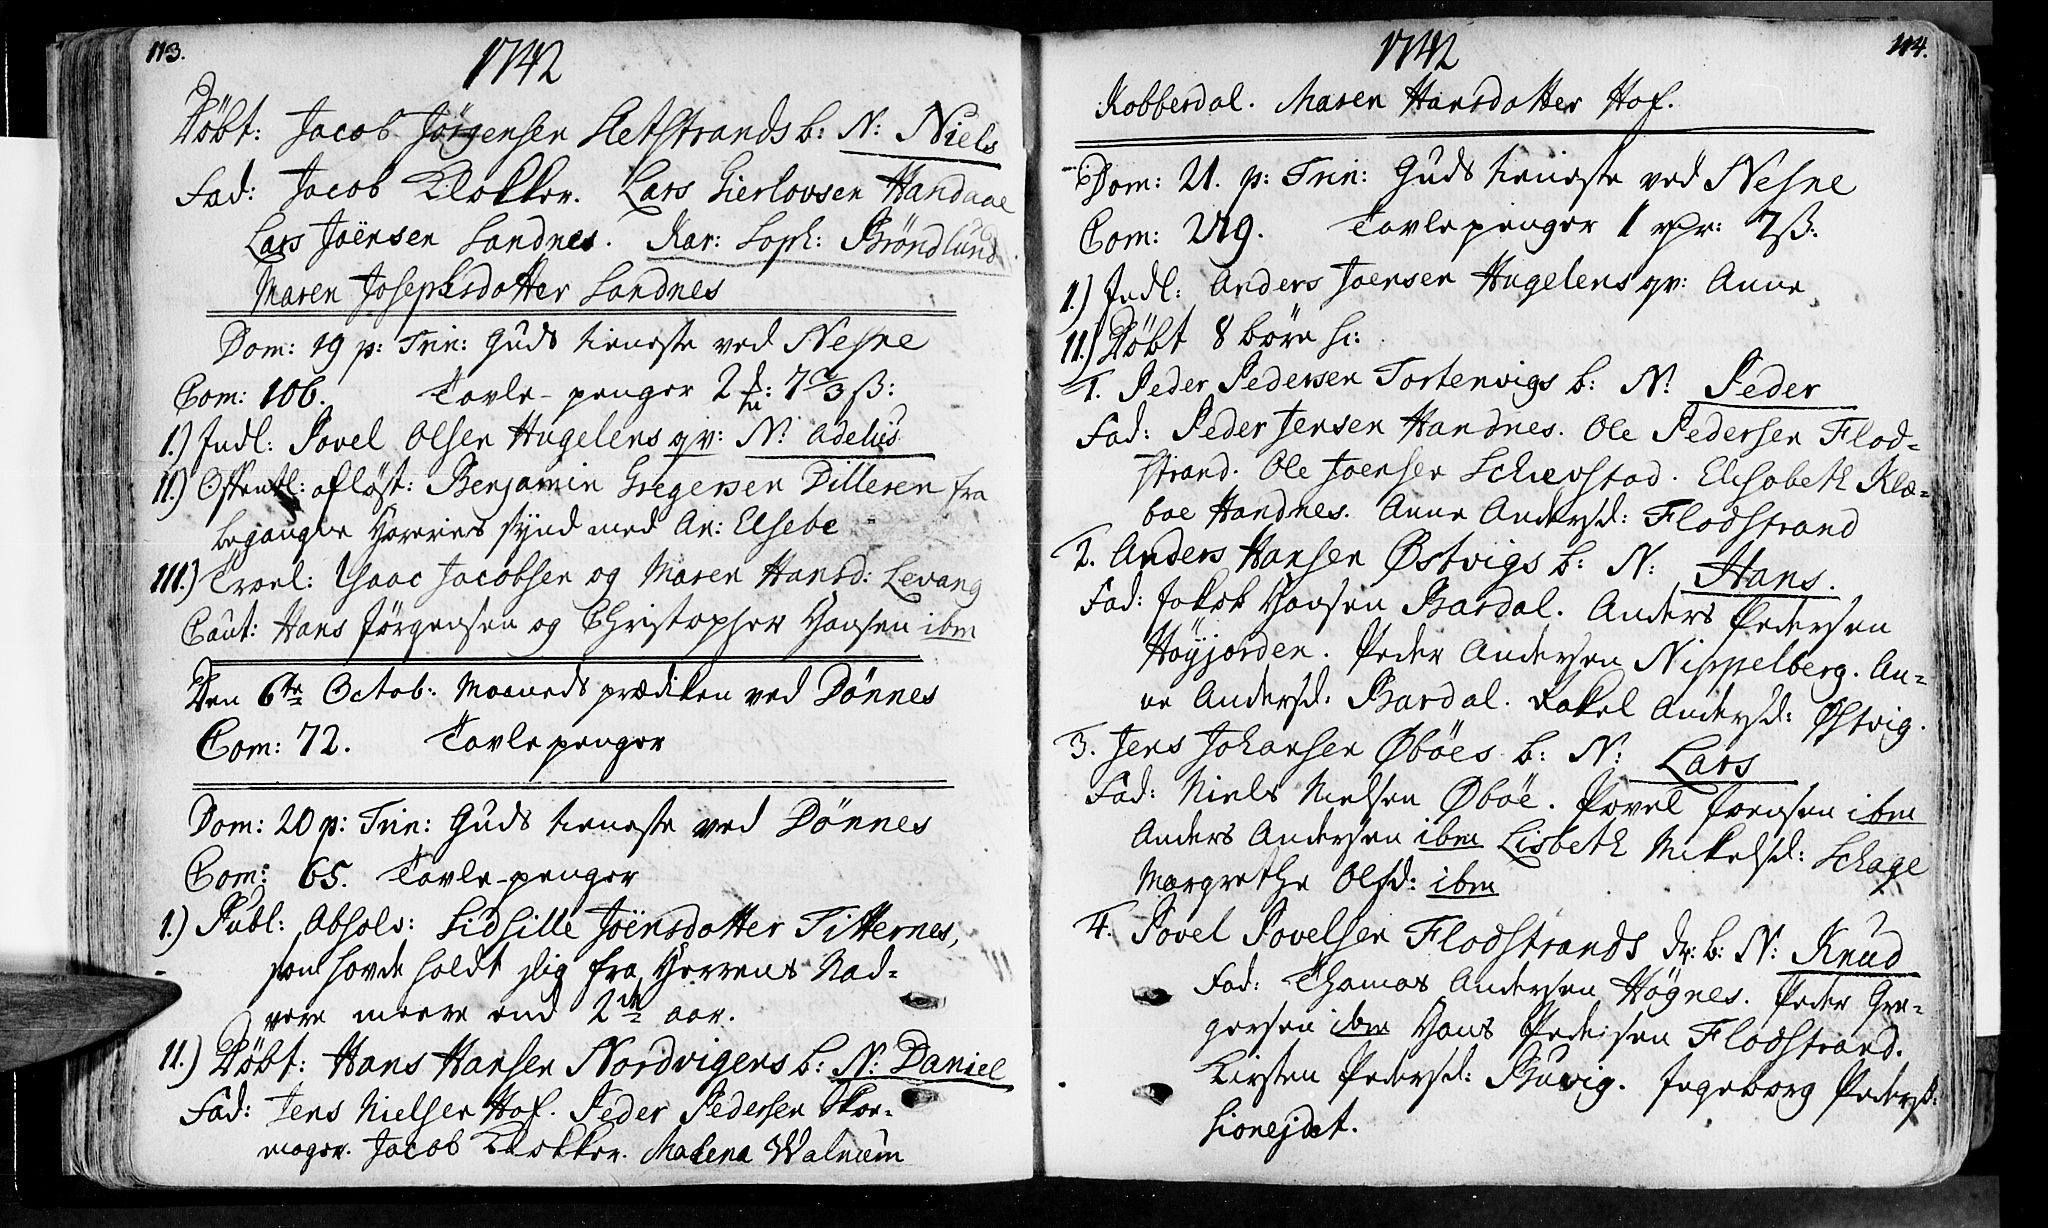 113.
1742
Döbt: Jacob Jörgensen Retstrands b: N: Niels
Fad: Jacob Klokker. Lars Gierlovsen Handaae
Lars Joënsen Sandnes. Kar: Soph: Bröndlund
Maren Josephsdotter Sandnes
Dom: 19 p: Trin: Guds tieneste ved Nesne
Com: 106. Tavle-penger 2 7 ß:
1.) Indl: Povel Olsen Hugelens qv: N: Adelus
11.) Offentl: afløst: Benjamin Gregersen Dilleren fra
begangne Horeries synd med An: Elsebe
111.) Trovl: Isaac Jacobsen og Maren Hansd: Levang
Caut: Hans Jörgensen og Christopher Hansen ibm
Den 6te Octob: Maaneds prædiken ved Dönnes
Com: 72. Tavle penger
Dom: 20 p: Trin: Guds tieneste ved Dönnes
Com: 65. Tavle-penger
1.) Publ: Absolv: Sidsille Joënsdotter Titternes,
som hovde holdt sig fra Herrens Nad-
vere meere end 2de aar.
11.) Döbt: Hans Hansen Nordvigens b: N: Daniel
Fad: Jens Nielsen Hof. Peder Pedersen Skoe-
mager. Jacob Klokker. Malena Walnum
114.
1742
Kobberdal. Maren Hansdotter Hof.
Dom: 21. p: Trin: Guds tieneste ved Nesne
Com: 219. Tavlepenger 1 rdr: 7ß:
1.) Indl: Anders Joensen Hugelens qv: Anne
11.) Döbt 8 börn sc:
1. Peder Pedersen Tortenvigs b: N: Peder
Fad: Peder Jensen Handnes. Ole Pedersen Flod-
strand. Ole Joensen Schievstad. Elisabeth Klæ-
boe Handnes. Anne Andersd: Flodstrand
2. Anders Hansen Østvigs b: N: Hans.
Fad: Jakob Hansen Bardal. Anders Pedersen
Höyjorden. Peder Andersen Nippelberg. An-
ne Andersd: Bardal. Rakel Andersd: Østvig.
3. Jens Johansen Øböes b: N: Lars
Fad: Niels Nielsen Øböe. Povel Joensen ibm
Anders Andersen ibm Lisbeth Mikelsd: Schage
Margrethe Olsd: ibm
4. Povel Povelsen Flodstrands dr: b: N: Knud
Fad: Thomas Andersen Högnes. Peder Gre-
gersen ibm Hans Pedersen Flodstrand.
Kirsten Pedersd: Buvig. Ingeborg Pedersd:
Sionejdet.